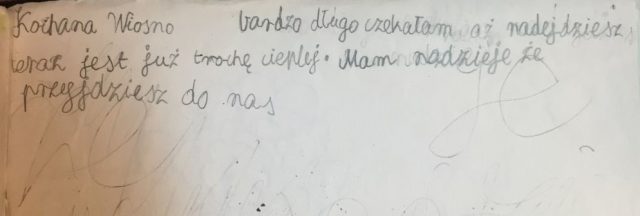 Kochana Wiosno bardzo długo czekałam aż nadejdziesz
teraz jest już trochę cieplej. Mam nadzieje że
przyjdziesz do nas